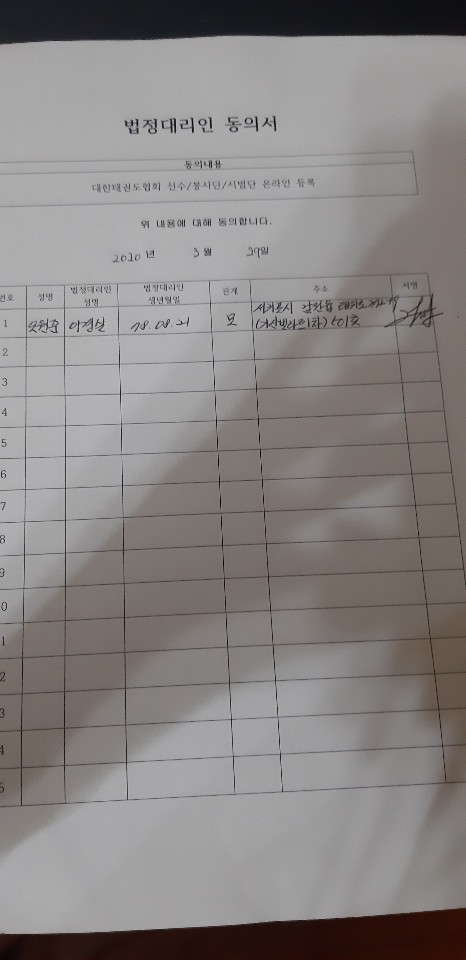 법정대리인 동의서
동의내용
대한태권도협회 선수/봉사단/시범단 온라인 등록
위 내용에 대해 동의합니다.
2020 년 3 월 29일
번호 성명 법정대리인 성명 법정대리인 생년월일 관계 주소 서명
1 이정실 78.08.21 모 서귀포시
501호
2
3
4
5
6
7
8
9
0
1
2
3
4
5